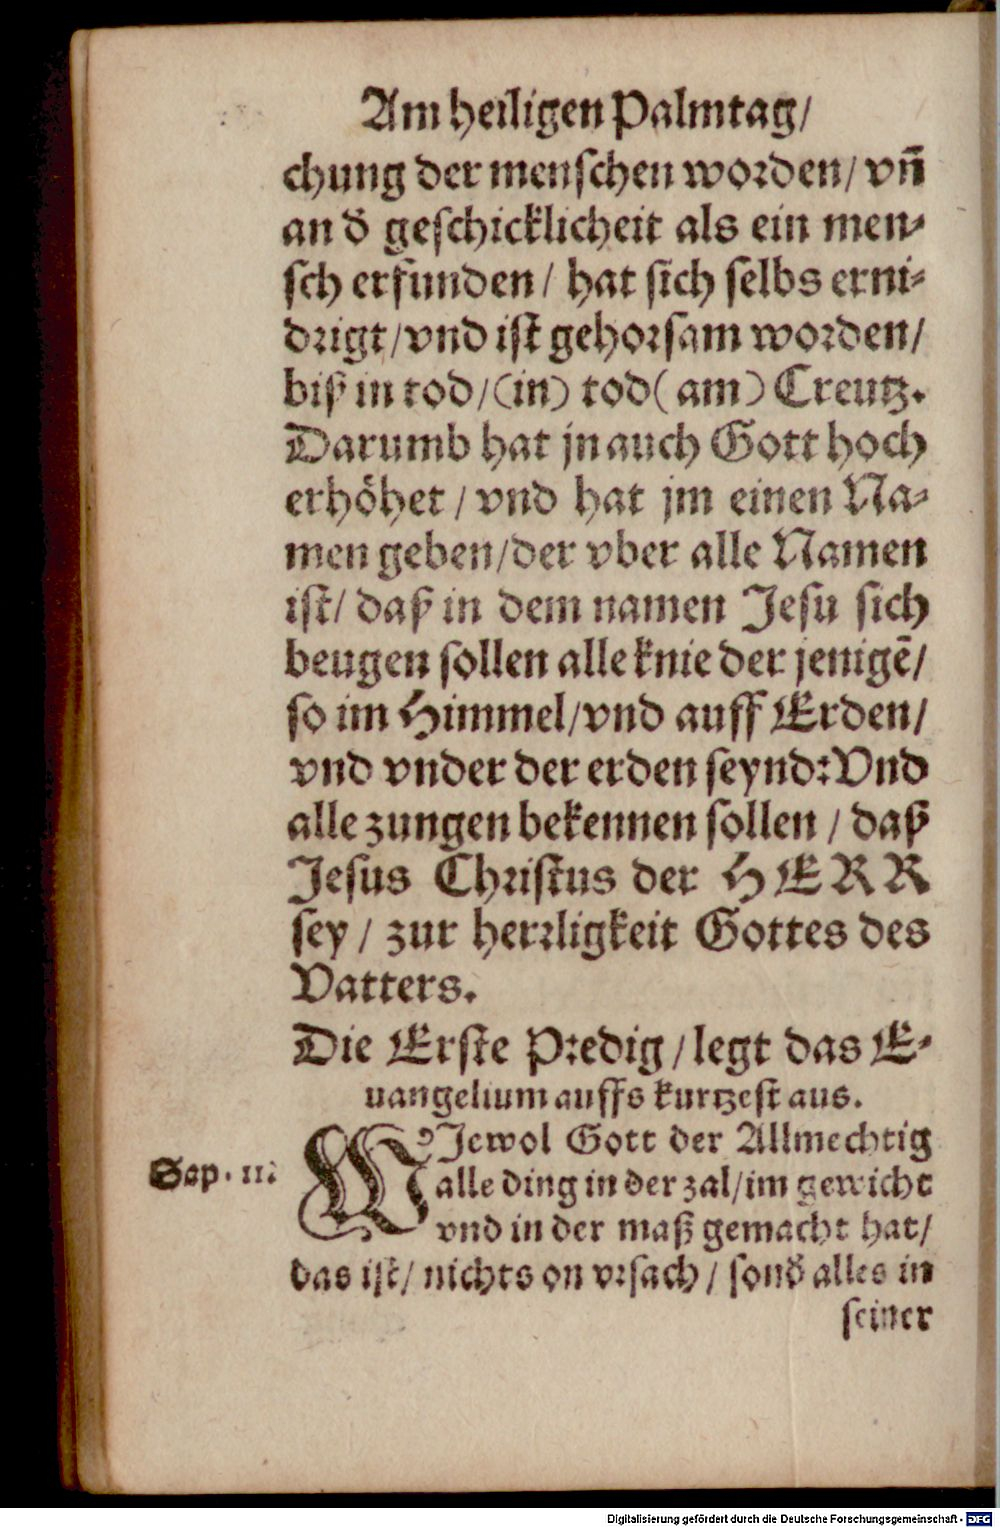 Am heiligen Palmtag/
chung der menſchen worden/ vñ
an d̕ geſchicklicheit als ein men⸗
ſch erfunden/ hat ſich ſelbs erni⸗
drigt/vnd iſt gehorſam worden/
biß in tod/(in) tod(am) Creutz.
Darumb hat jn auch Gott hoch
erhöhet/ vnd hat jm einen Na⸗
men geben/der vber alle Namen
iſt/ daß in dem namen Jeſu ſich
beugen ſollen alle knie der jenigē/
ſo im Himmel/vnd auff Erden/
vnd vnder der erden ſeynd:Vnd
alle zungen bekennen ſollen/ daß
Jeſus Chriſtus der HERR
ſey/ zur herrligkeit Gottes des
Vatters.
Die Erſte Predig/legt das E⸗
uangelium auffs kurtzeſt aus.
WJewol Gott der Allmechtig
Sap. 11.
alle ding in der zal/im gewicht
vnd in der maß gemacht hat/
das iſt/ nichts on vrſach/ ſond̕ alles in
ſeiner
Digitalisierung gefördert durch die Deutsche Forschungsgemeinschaft - DFG